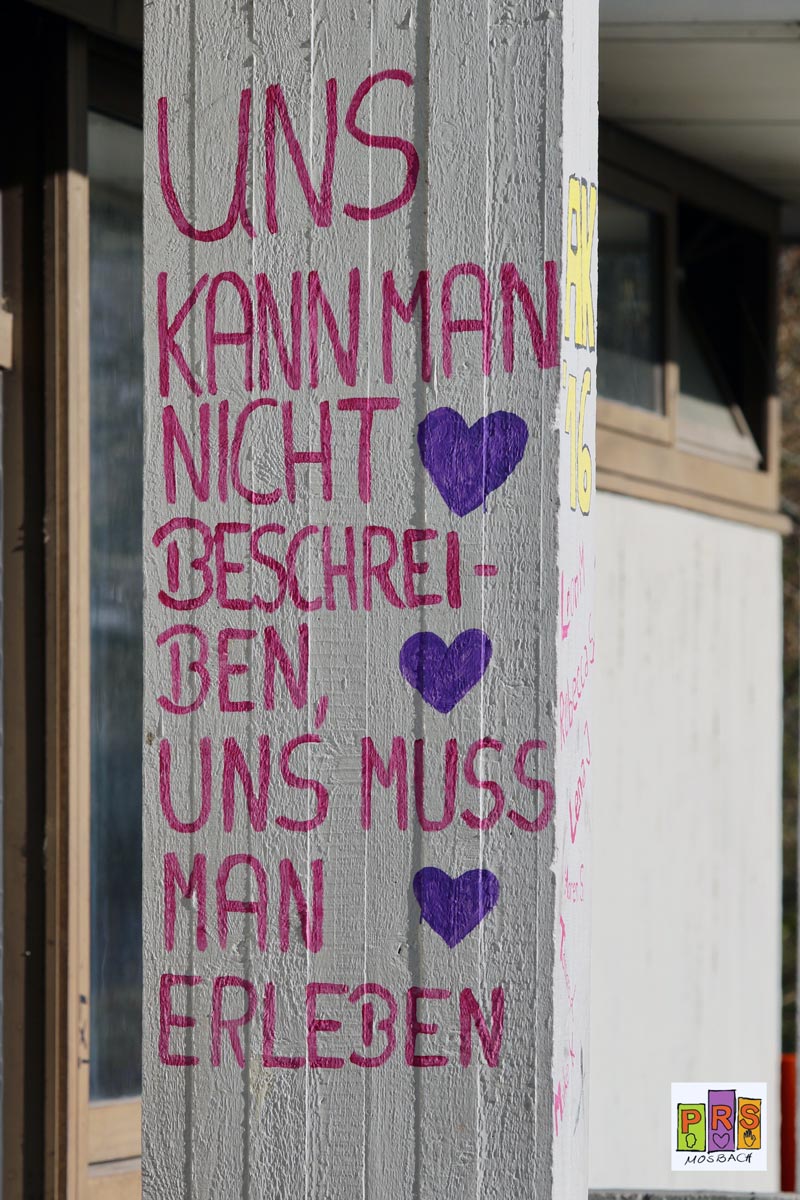 UNS
KANN MAN
NICHT
BESCHREI-
BEN,
UNS MUSS
MAN
ERLEBEN
AK
'16
Rebecca S
Lena J
PRS
MOSBACH